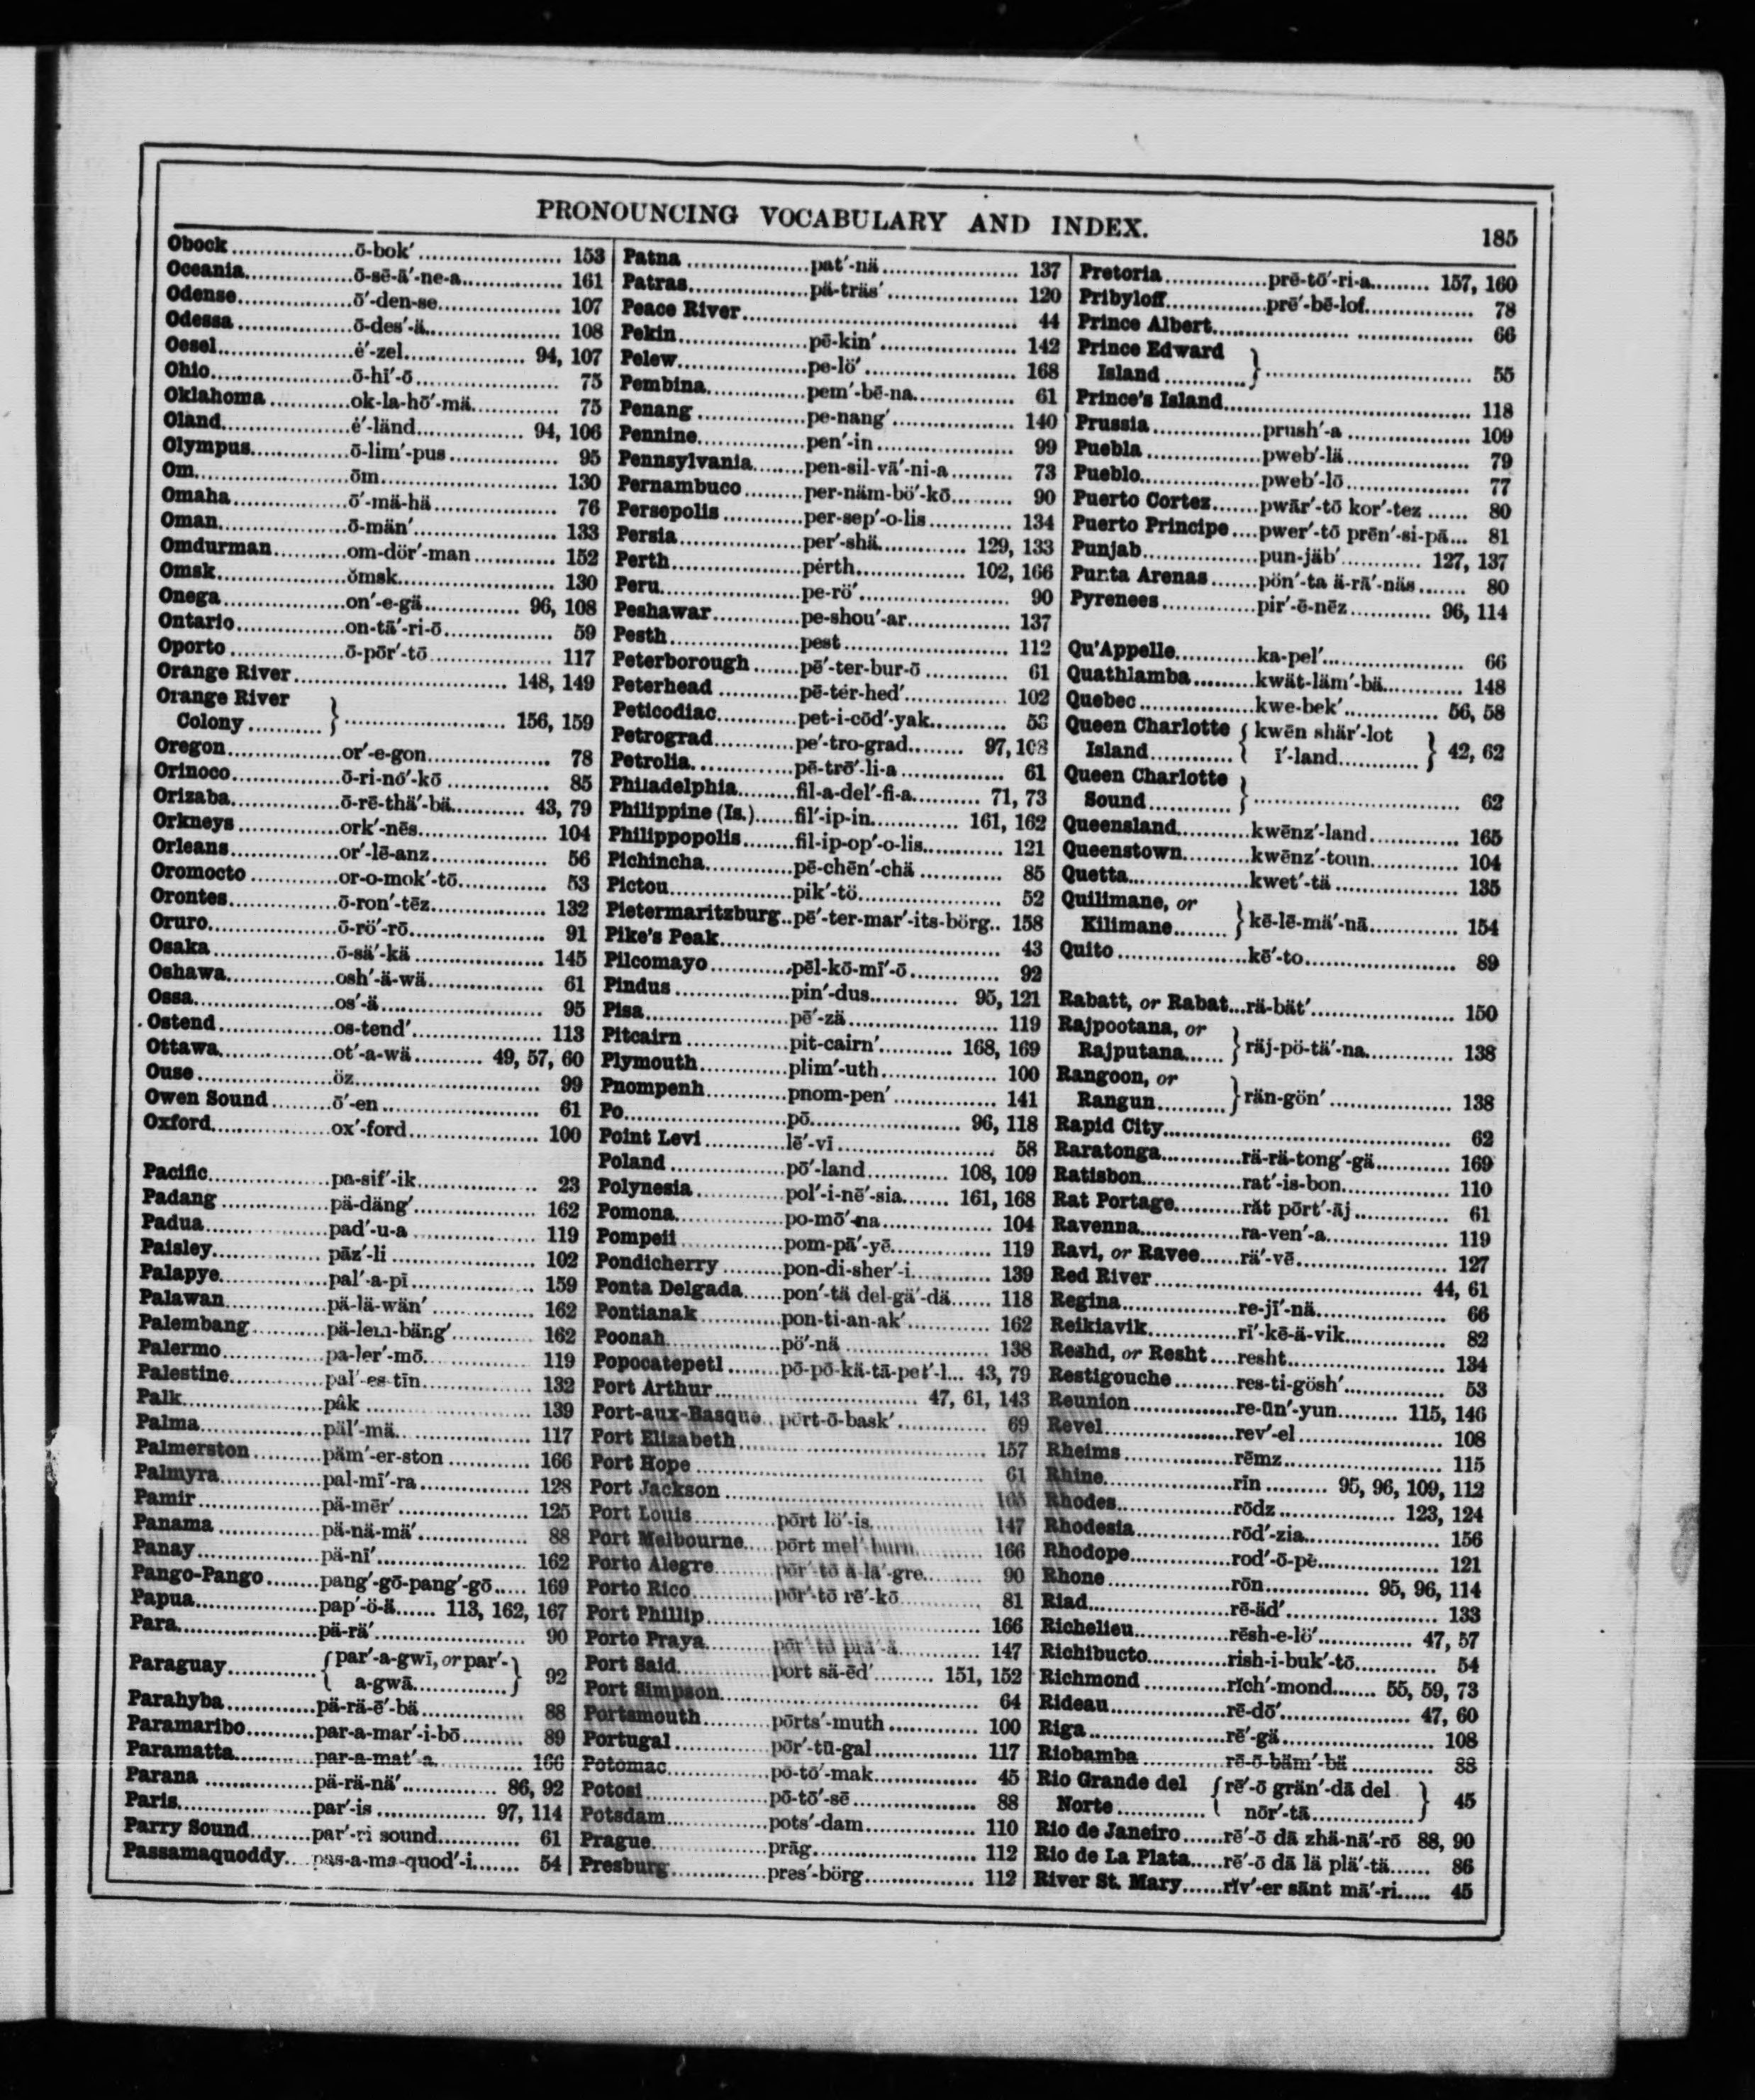 PRONOUNCING VOCABULARY AND INDEX. 185
Obock..................ō-bok′..................... 153
Oceania................ō-sē-ā′-ne-a............... 161
Odense.................ō′-den-se.................. 107
Odessa.................ō-des′-ä................... 108
Oesel....................ė′-zel.................. 94, 107
Ohio.....................ō-hī′-ō..................... 75
Oklahoma............ok-la-hō′-mä............. 75
Oland...................ė′-länd................ 94, 106
Olympus...............ō-lim′-pus................ 95
Om.......................ōm.......................... 130
Omaha.................ō′-mä-hä.................. 76
Oman...................ō-män′..................... 133
Omdurman...........om-dör′-man............ 152
Omsk...................ŏmsk....................... 130
Onega..................on′-e-gä.............. 96, 108
Ontario................on-tā′-ri-ō................ 59
Oporto.................ō-pōr′-tō.................. 117
Orange River................................ 148, 149
Orange River
Colony...........}........................ 156, 159
Oregon.................or′-e-gon.................. 78
Orinoco................ō-ri-nō′-kō............... 85
Orizaba................ō-rē-thä′-bä.......... 43, 79
Orkneys...............ork′-nēs................... 104
Orleans................or′-lē-anz................. 56
Oromocto.............or-o-mok′-tō............. 53
Orontes................ō-ron′-tēz................. 132
Oruro...................ō-rö′-rō.................... 91
Osaka...................ō-sä′-kä................... 145
Oshawa................osh′-ä-wä................. 61
Ossa.....................os′-ä........................ 95
Ostend.................os-tend′................... 113
Ottawa.................ot′-a-wä.......... 49, 57, 60
Ouse....................öz........................... 99
Owen Sound.........ō′-en....................... 61
Oxford..................ox′-ford................... 100
Pacific..................pa-sif′-ik.................. 23
Padang................pä-däng′.................. 162
Padua..................pad′-u-a.................. 119
Paisley................pāz′-li..................... 102
Palapye................pal′-a-pī.................. 159
Palawan...............pä-lä-wän′............... 162
Palembang...........pä-lem-bäng′............ 162
Palermo...............pa-ler′-mō................ 119
Palestine..............pal′-es-tīn................ 132
Palk.....................pâk........................ 139
Palma..................päl′-mä................... 117
Palmerston...........päm′-er-ston............ 166
Palmyra...............pal-mī′-ra................ 128
Pamir..................pä-mēr′................... 125
Panama...............pä-nä-mä′................ 88
Panay..................pä-nī′...................... 162
Pango-Pango........pang′-gō-pang′-gō..... 169
Papua..................pap′-ö-ä...... 113, 162, 167
Para....................pä-rä′...................... 90
Paraguay............{par′-a-gwī, or par′-
a-gwā..............} 92
Parahyba.............pä-rä-ē′-bä............... 88
Paramaribo..........par-a-mar′-i-bō......... 89
Paramatta............par-a-mat′-a............. 166
Parana................pä-rä-nä′............. 86, 92
Paris...................par′-is................ 97, 114
Parry Sound.........par′-ri sound............ 61
Passamaquoddy....pas-a-ma-quod′-i....... 54
Patna..................pat′-nä.................... 137
Patras.................pä-träs′................... 120
Peace River......................................... 44
Pekin..................pē-kin′.................... 142
Pelew..................pe-lö′...................... 168
Pembina..............pem′-bē-na............... 61
Penang................pe-nang′.................. 140
Pennine...............pen′-in..................... 99
Pennsylvania........pen-sil-vā′-ni-a......... 73
Pernambuco.........per-näm-bö′-kō......... 90
Persepolis............per-sep′-o-lis............ 134
Persia..................per′-shä............. 129, 133
Perth...................pėrth................ 102, 166
Peru....................pe-rö′...................... 90
Peshawar.............pe-shou′-ar............... 137
Pesth...................pest........................ 112
Peterborough.......pē′-ter-bur-ō............. 61
Peterhead............pē-tėr-hed′............... 102
Peticodiac............pet-i-cōd′-yak........... 53
Petrograd............pe′-tro-grad........ 97, 108
Petrolia...............pē-trō′-li-a............... 61
Philadelphia.........fil-a-del′-fi-a.......... 71, 73
Philippine (Is.)......fil′-ip-in............. 161, 162
Philippopolis........fil-ip-op′-o-lis............ 121
Pichincha.............pē-chēn′-chä............. 85
Pictou..................pik′-tö..................... 52
Pietermaritzburg..pē′-ter-mar′-its-börg.. 158
Pike's Peak.......................................... 43
Pilcomayo............pēl-kō-mī′-ō............. 92
Pindus.................pin′-dus............. 95, 121
Pisa.....................pē′-zä...................... 119
Pitcairn...............pit-cairn′........... 168, 169
Plymouth.............plim′-uth................. 100
Pnompenh............pnom-pen′............... 141
Po.......................pō...................... 96, 118
Point Levi............lē′-vī....................... 58
Poland.................pō′-land............ 108, 109
Polynesia.............pol′-i-nē′-sia....... 161, 168
Pomona................po-mō′-na................ 104
Pompeii...............pom-pā′-yē............... 119
Pondicherry.........pon-di-sher′-i............ 139
Ponta Delgada......pon′-tä del-gä′-dä...... 118
Pontianak............pon-ti-an-ak′............ 162
Poonah................pö′-nä...................... 138
Popocatepetl........pō-pō-kä-tā-pet′-l... 43, 79
Port Arthur............................ 47, 61, 143
Port-aux-Basque..pōrt-ō-bask′............. 69
Port Elizabeth..................................... 157
Port Hope........................................... 61
Port Jackson....................................... 165
Port Louis............pōrt lö′-is................. 147
Port Melbourne....pōrt mel′-burn.......... 166
Porto Alegre........pōr′-tō ä-lā′-gre......... 90
Porto Rico...........pōr′-tō rē′-kō............ 81
Port Phillip......................................... 166
Porto Praya.........pōr′-tō prä′-ä............ 147
Port Said.............port sä-ēd′......... 151, 152
Port Simpson...................................... 64
Portsmouth..........pōrts′-muth............. 100
Portugal..............pōr′-tū-gal............... 117
Potomac..............pō-tō′-mak............... 45
Potosi.................pō-tō′-sē.................. 88
Potsdam..............pots′-dam................ 110
Prague................prāg........................ 112
Presburg.............pres′-börg................ 112
Pretoria...............prē-tō′-ri-a......... 157, 160
Pribyloff..............prē′-bē-lof................ 78
Prince Albert....................................... 66
Prince Edward
Island............}.............................. 55
Prince's Island.................................... 118
Prussia................prush′-a.................. 109
Puebla.................pweb′-lä.................. 79
Pueblo.................pweb′-lō.................. 77
Puerto Cortez.......pwār′-tō kor′-tez...... 80
Puerto Principe....pwer′-tō prēn′-si-pā... 81
Punjab.................pun-jäb′............ 127, 137
Punta Arenas.......pön′-ta ä-rā′-näs....... 80
Pyrenees..............pir′-ē-nēz............ 96, 114
Qu'Appelle............ka-pel′..................... 66
Quathlamba.........kwät-läm′-bä............ 148
Quebec................kwe-bek′.............. 56, 58
Queen Charlotte {kwēn shär′-lot
Island............ ī′-land............} 42, 62
Queen Charlotte
Sound............}.............................. 62
Queensland...........kwēnz′-land............. 165
Queenstown..........kwēnz′-toun............. 104
Quetta.................kwet′-tä................... 135
Quilimane, or
Kilimane........}kē-lē-mä′-nā............. 154
Quito...................kē′-to...................... 89
Rabatt, or Rabat...rä-bät′..................... 150
Rajpootana, or
Rajputana......}räj-pö-tä′-na............. 138
Rangoon, or
Rangun..........}rän-gön′.................. 138
Rapid City.......................................... 62
Raratonga............rä-rä-tong′-gä........... 169
Ratisbon...............rat′-is-bon................ 110
Rat Portage..........răt pōrt′-āj.............. 61
Ravenna...............ra-ven′-a.................. 119
Ravi, or Ravee......rä′-vē...................... 127
Red River...................................... 44, 61
Regina.................re-jī′-nä................... 66
Reikiavik.............rī′-kē-ä-vik............... 82
Reshd, or Resht....resht....................... 134
Restigouche.........res-ti-gösh′............... 53
Reunion...............re-ūn′-yun......... 115, 146
Revel...................rev′-el..................... 108
Rheims................rēmz....................... 115
Rhine..................rīn......... 95, 96, 109, 112
Rhodes................rōdz................. 123, 124
Rhodesia..............rōd′-zia.................... 156
Rhodope...............rod′-ō-pė................. 121
Rhone..................rōn............... 95, 96, 114
Riad....................rē-äd′...................... 133
Richelieu..............rēsh-e-lö′............. 47, 57
Richibucto...........rish-i-buk′-tō............ 54
Richmond............rĭch′-mond....... 55, 59, 73
Rideau.................rē-dō′................. 47, 60
Riga....................rē′-gä...................... 108
Riobamba............rē-ō-bäm′-bä............ 88
Rio Grande del {rē′-ō grän′-dā del
Norte............. nōr′-tā..............} 45
Rio de Janeiro......rē′-ō dā zhä-nā′-rō 88, 90
Rio de La Plata.....rē′-ō dā lä plä′-tä...... 86
River St. Mary......rĭv′-er sānt mā′-ri..... 45